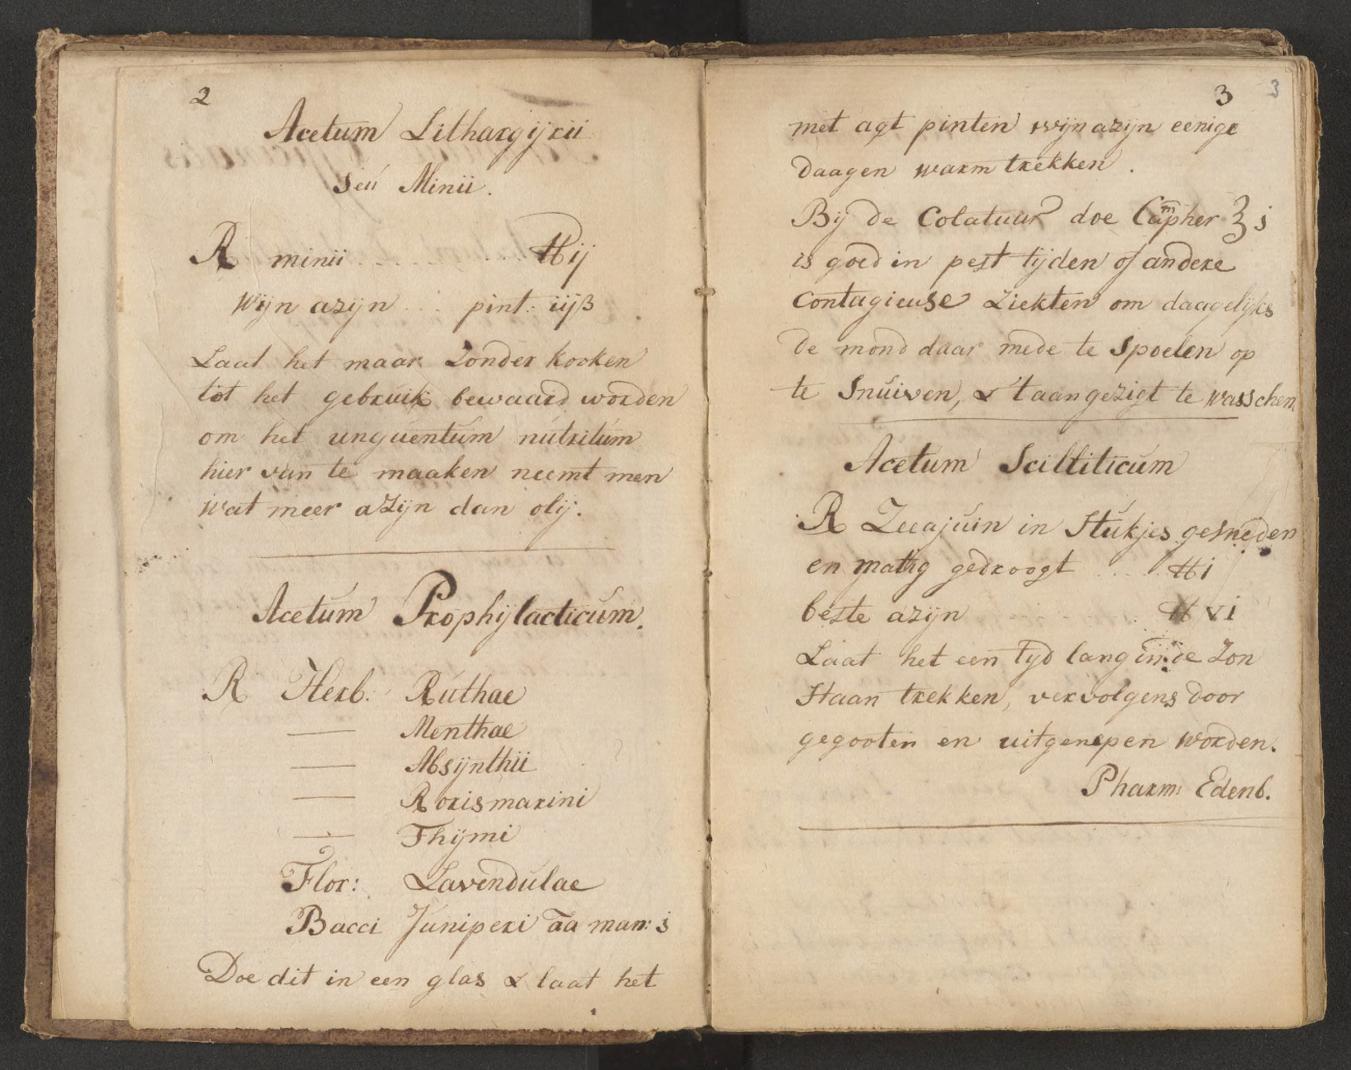 2
Acetum Lithargijrii
seú Minii.
℞ minii ℔ij
Wijn azijn ... pint: iijß
Laat het maar zonder kooken
tot het gebruik bewaard worden
om het unguentum nutritúm
hier van te maaken neemt men
wat meer azijn dan olij.
Acetúm Prophijlacticúm.
℞ Herb: Rúthae
— Menthae
— Absijnthii
— Rorismarini
— Thijmi
Flor: Lavendúlae
Bacci Júniperi aa man: j
Doe dit in een glas & laat het
3 3
met agt pinten wijn azijn eenige
daagen warm trekken.
Bij de Colatuur doe Campher ʒj
is goed in pest tijden of andere
Contagieuse Ziekten om daagelijks
de mond daar mede te Spoelen op
te Snúiven, & 't aangezigt te wasschen.
Acetum Scilliticúm
℞ Zeeajúin in Stúkjes gesneden
en matig gedroogt .... ℔i
beste azijn ℔ vi
Laat het een tijd lang in de Zon
Staan trekken, vervolgens door
gegooten en uitgenepen worden.
Pharm: Edenb.